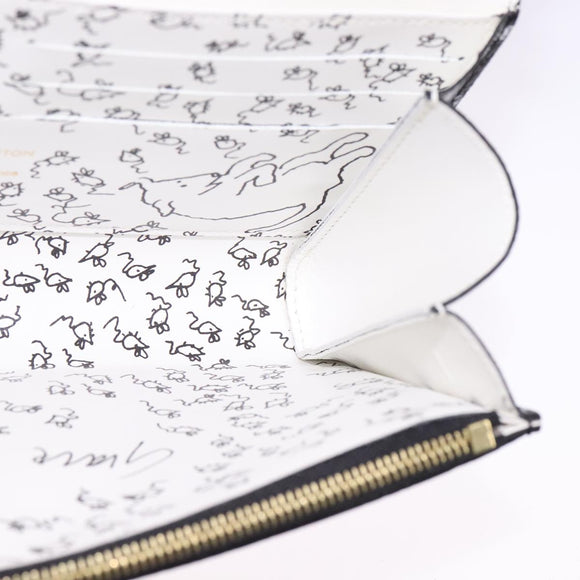 TON
Grace